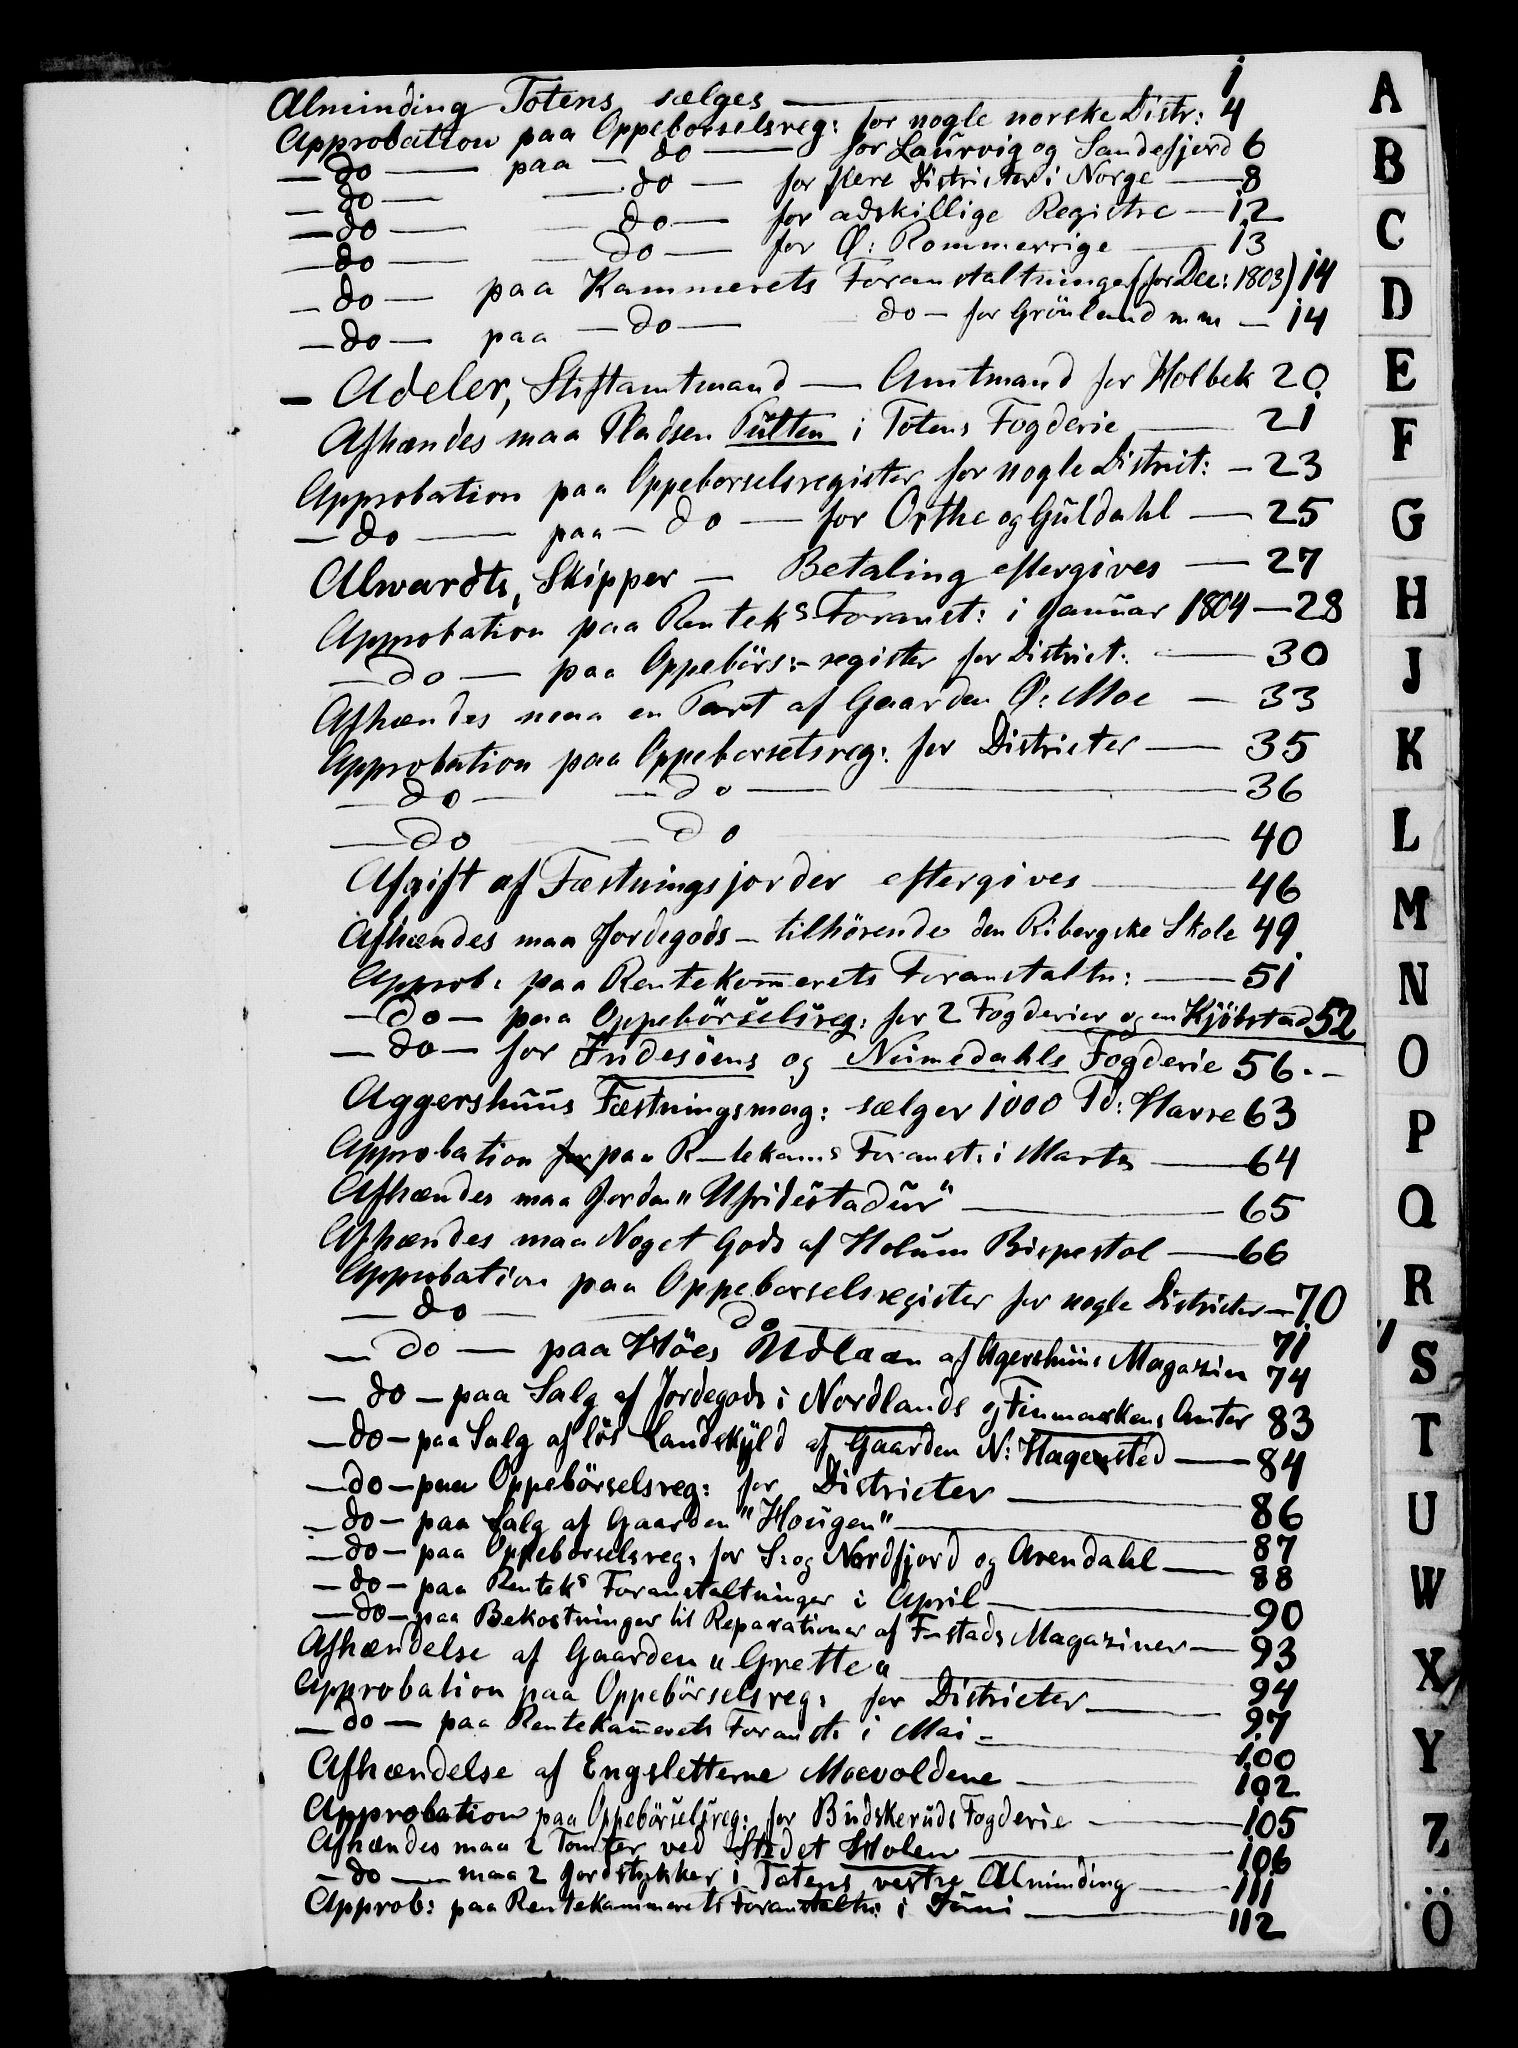 Alminding Totens sælges — 1
Approbation paa Oppeborselsreg: for nogle norske Distr: 4
— do — paa — do — for Laurvig og Sandefjord 6
— do — — do — for flere Districter i Norge — 8
— do — — do — for adskillige Registre — 12
— do — — do — for Ø: Rommerrige — 13
— do — paa Kammerets Foranstaltninger (for Dec: 1803) 14
— do — paa — do — do — for Grönland m m — 14
— Adeler, Stiftamtmand — Amtmand for Holbek 20
Afhændes maa Pladsen Tulten i Totens Fogderie — 21
Approbation paa Oppeborselsregister for nogle District: — 23
— do — paa — do — for Orthe og Guldahl — 25
Alwardts, Skipper — Betaling eftergives — 27
Approbation paa Renteks Foranst: i Januar 1804 — 28
— do — paa Oppebörs:- register for District: — 30
Afhændes maa en Part af Gaarden Ø: Moe — 33
Approbation paa Oppeborselsreg: for Districter — 35
— do — — do — 36
— do — do — 40
Afgift af Fæstningsjorder eftergives — 46
Afhændes maa Jordegods — tilhörende den Ribergske Skole 49
Approb: paa Rentekom̄erets Foranstaltn: — 51
— do — paa Oppebörselsreg: for 2 Fogderier og en Kjöbstad 52
— do — for Indesöens og Numedahls Fogderie 56. —
Aggershuus Fæstningsmag: sælger 1000 Td: Havre 63
Approbation for paa R-tekams Foranst: i Marts — 64
Afhændes maa Jorden "Ufridestadur" — 65
Afhændes maa Noget Gods af Holum Bispestol — 66
Approbation paa Oppeborselsregister for nogle Districter — 70
— do — do — 71
— do — paa Höes Udlaan af Agershuus Magazin 74
— do — paa Salg af Jordegods i Nordlands og Finmarkens Amter 83
— do — paa Salg af lös Landskyld af Gaarden N: Hagensted — 84
— do — paa Oppebörselsreg: for Districter — 86
— do — paa Salg af Gaarden "Hougen" — 87
— do — paa Oppeborselsreg: for S: og Nordfjord og Arendahl — 88
— do — paa Renteks Foranstaltninger i April — 90
— do — paa Bekostninger til Reparationer af F-stads Magaziner — 93
Afhændelse af Gaarden "Grette" — 94
Approbation paa Oppebörselsreg: for Districter — 97
— do — paa Rentekam̄erets Foranst: i Mai — 100
Afhændelse af Engsletterne Moevoldene — 102
Approbation paa Oppebörselsreg: for Budskeruds Fogderie — 105
Afhændes maa 2 Tomter ved Stedet Holen — 106
— do — maa 2 Jordstykker i Totens vestre Alminding — 111
Approb: paa Rentekammerets Foranstaltn: i Juni — 112
A
B
C
D
E
F
G
H
J
K
L
M
N
O
P
Q
R
S
T
U
W
X
Y
Z
Ö